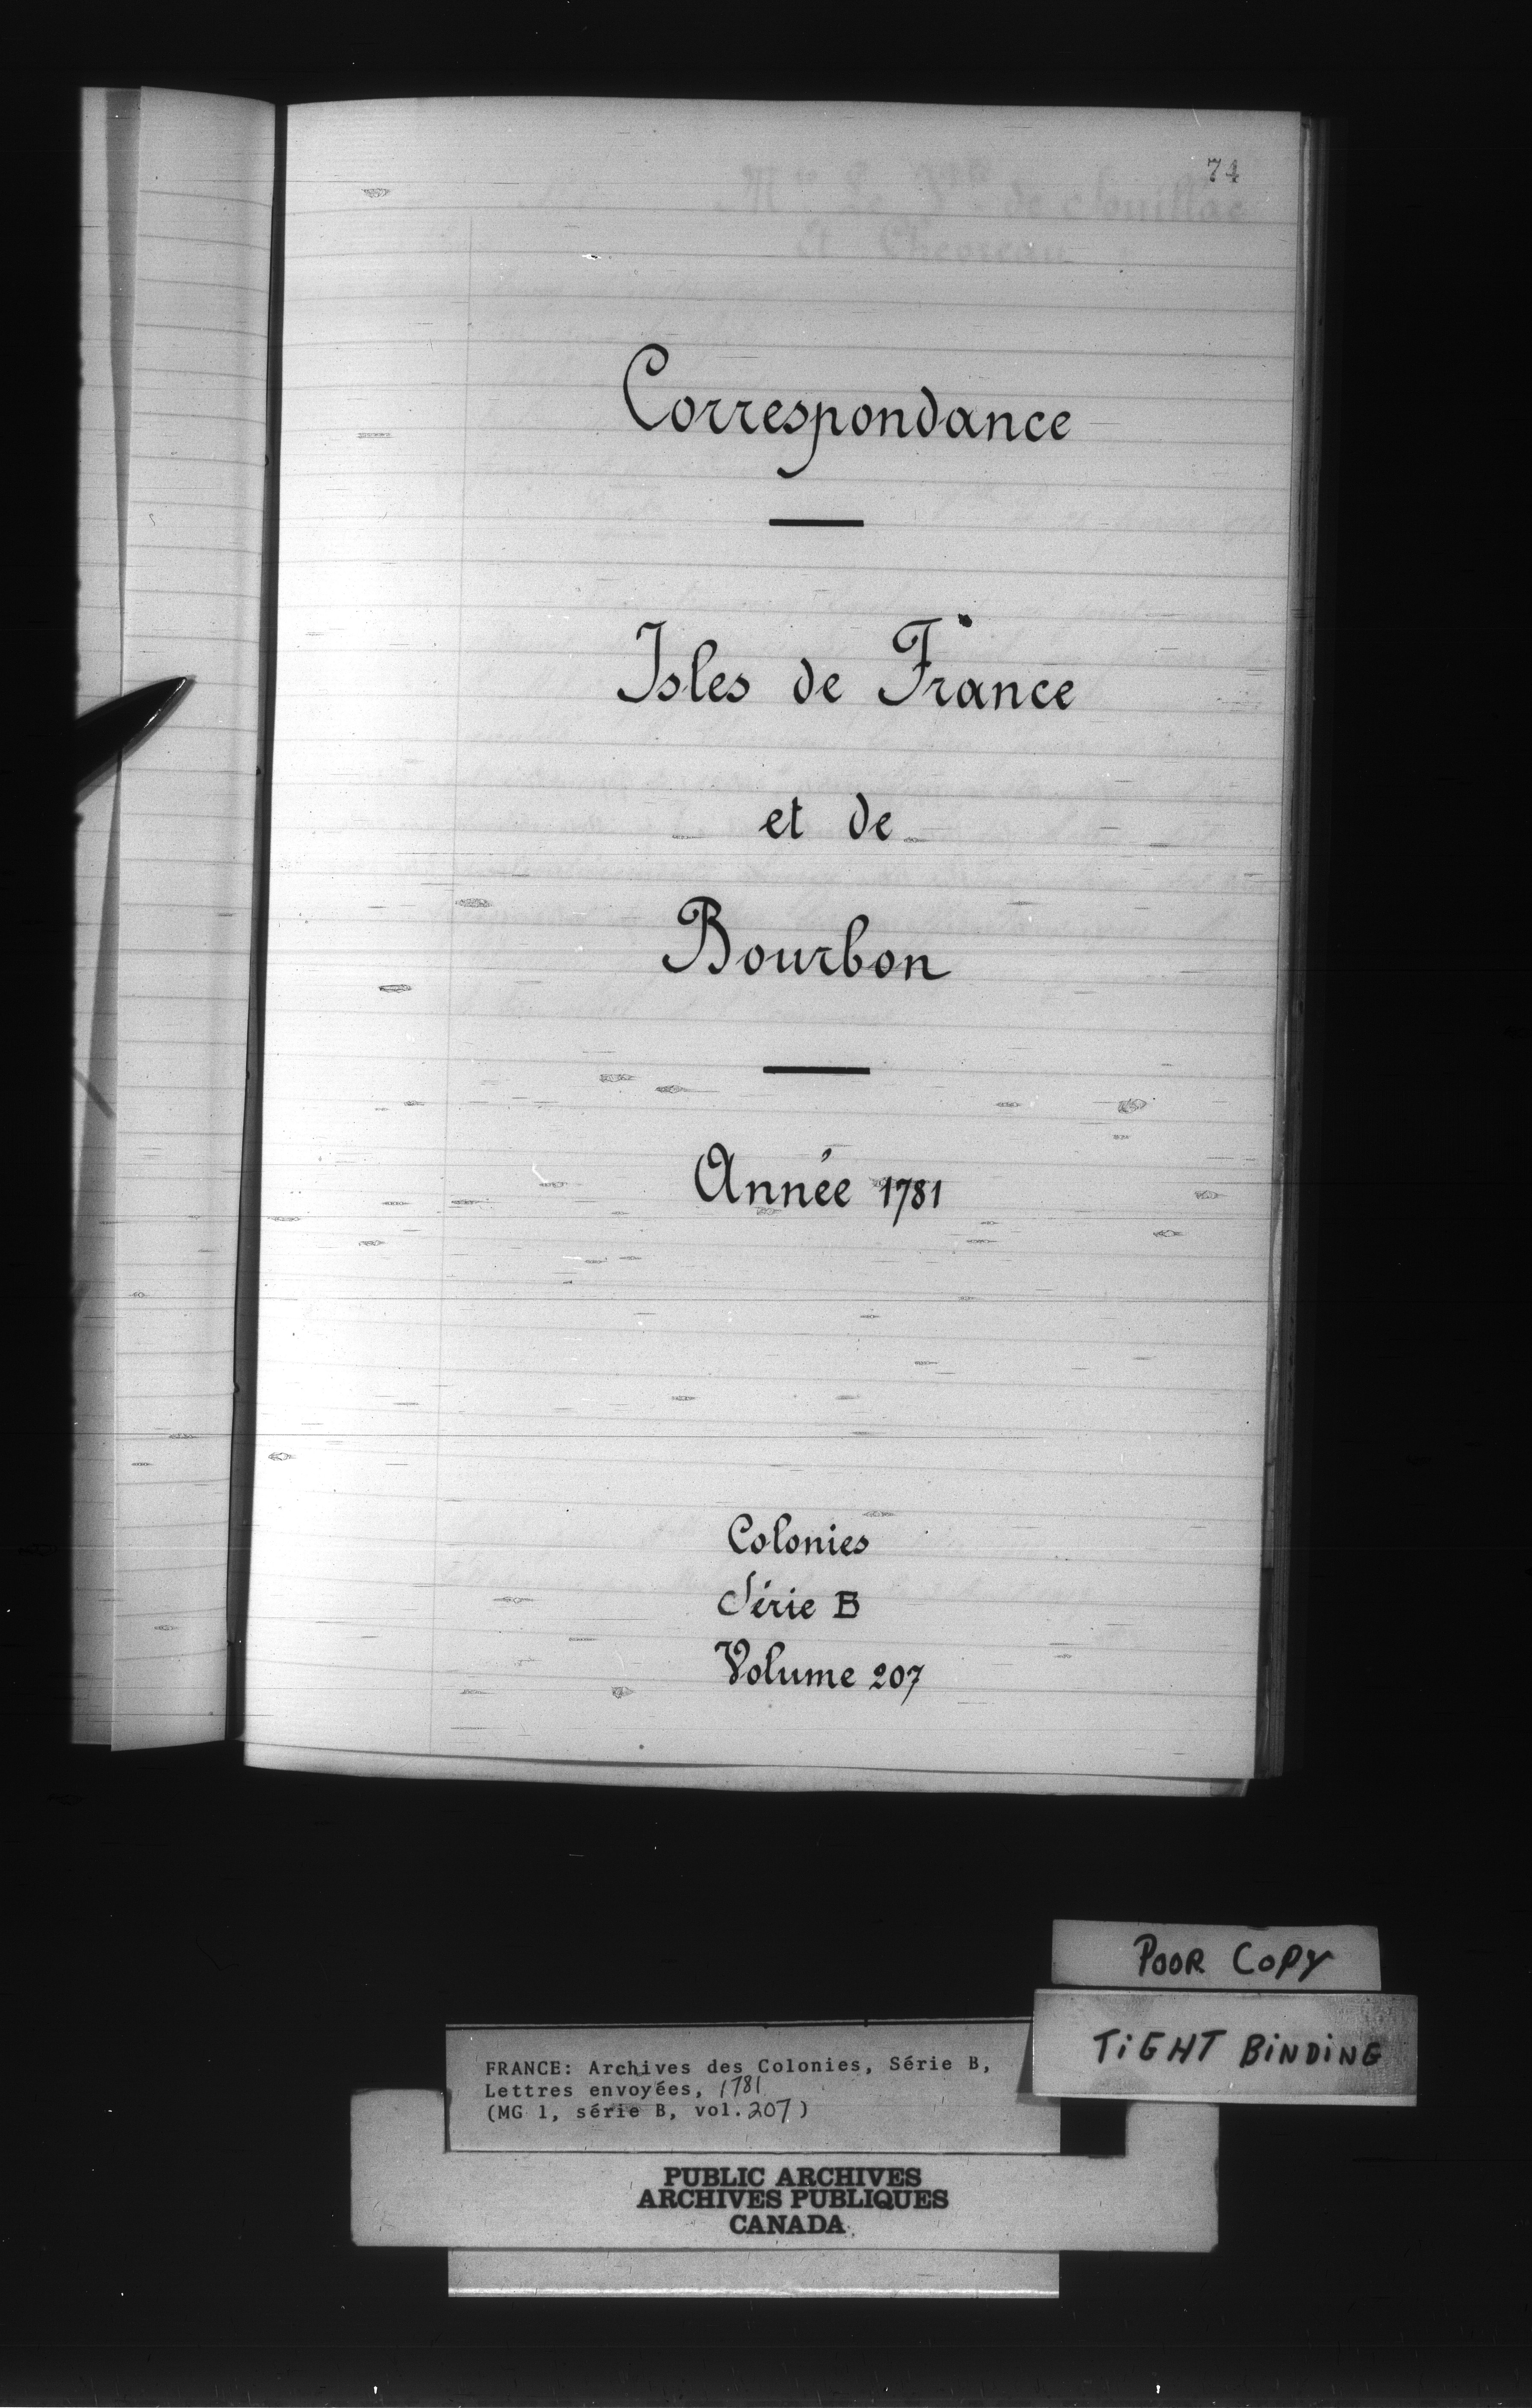 74
Correspondance
Isles de France
et de
Bourbon
Année 1781
Colonies
Série B
Volume 207
POOR COPY
TiGHT BiNDiNG
FRANCE: Archives des Colonies, Série B,
Lettres envoyées, 1781
(MG 1, série B, vol. 207)
PUBLIC ARCHIVES
ARCHIVES PUBLIQUES
CANADA